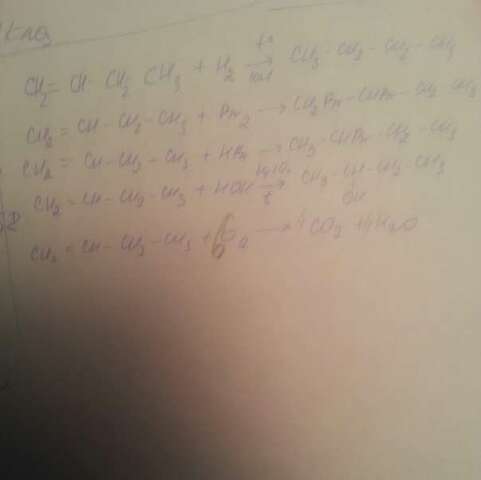 CH₂ = CH - CH₂ - CH₃ + H₂ →(t°, kat) CH₃ - CH₂ - CH₂ - CH₃
CH₂ = CH - CH₂ - CH₃ + Br₂ → CH₂Br - CHBr - CH₂ - CH₃
CH₂ = CH - CH₂ - CH₃ + HBr → CH₃ - CHBr - CH₂ - CH₃
CH₂ = CH - CH₂ - CH₃ + HOH → CH₃ - CH - CH₂ - CH₃
OH
CH₂ = CH - CH₂ - CH₃ + 6O₂ → 4CO₂ + 4H₂O